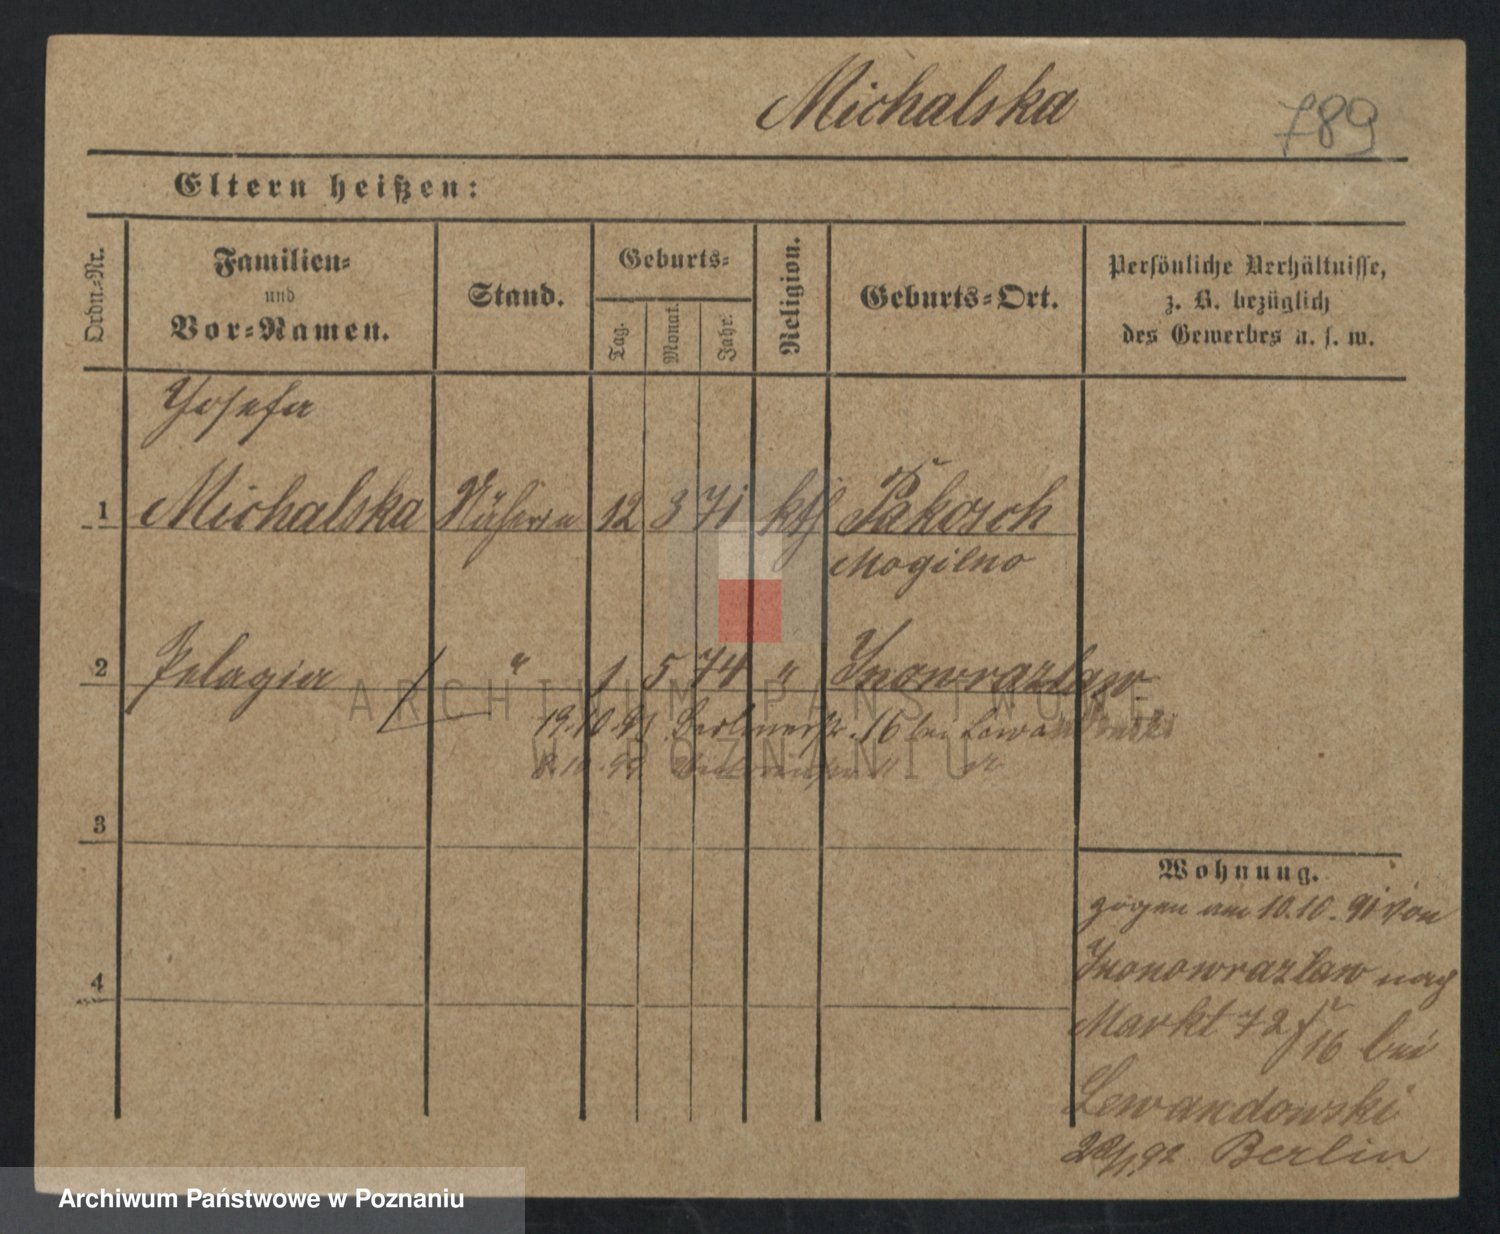 Michalska
789
Eltern heißen:
Ordn.-Nr.
Familien-
und
Vor-Namen.
Stand.
Geburts-
Tag.
Monat.
Jahr.
Religion.
Geburts-Ort.
Persönliche Verhältnisse,
z. B. bezüglich
des Gewerbes u. s. w.
Josefa
1 Michalska Näherin 12 3 71 kth Pakosch
Mogilno
2 Pelagia " 1 5 74 " Inowrazlaw
19.10.91 Berlinerstr. 16 bei Lewandowski
3
Wohnung.
zogen am 10.10.91 von
Inonowrazlaw nach
Markt 72 16 bei
4
Lewandowski
92 Berlin
ARCHIWUM PAŃSTWOWE
W POZNANIU
Archiwum Państwowe w Poznaniu